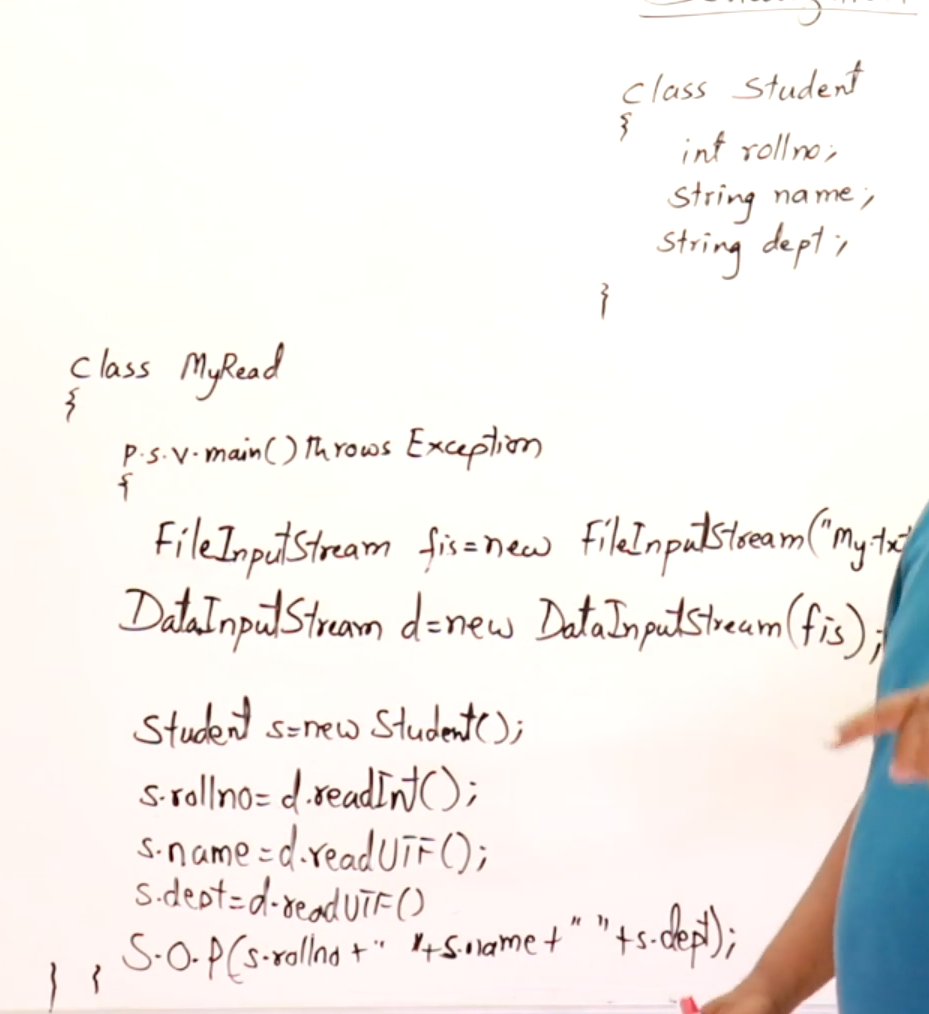 class Student
{
int rollno;
String name;
String dept;
}
class MyRead
{
p.s.v.main() throws Exception
{
FileInputStream fis=new FileInputStream("My.tx
DataInputStream d=new DataInputStream(fis);
Student s=new Student();
s.rollno=d.readInt();
s.name=d.readUTF();
s.dept=d.readUTF()
S.O.P(s.rollno+" "+s.name+" "+s.dept);
} }